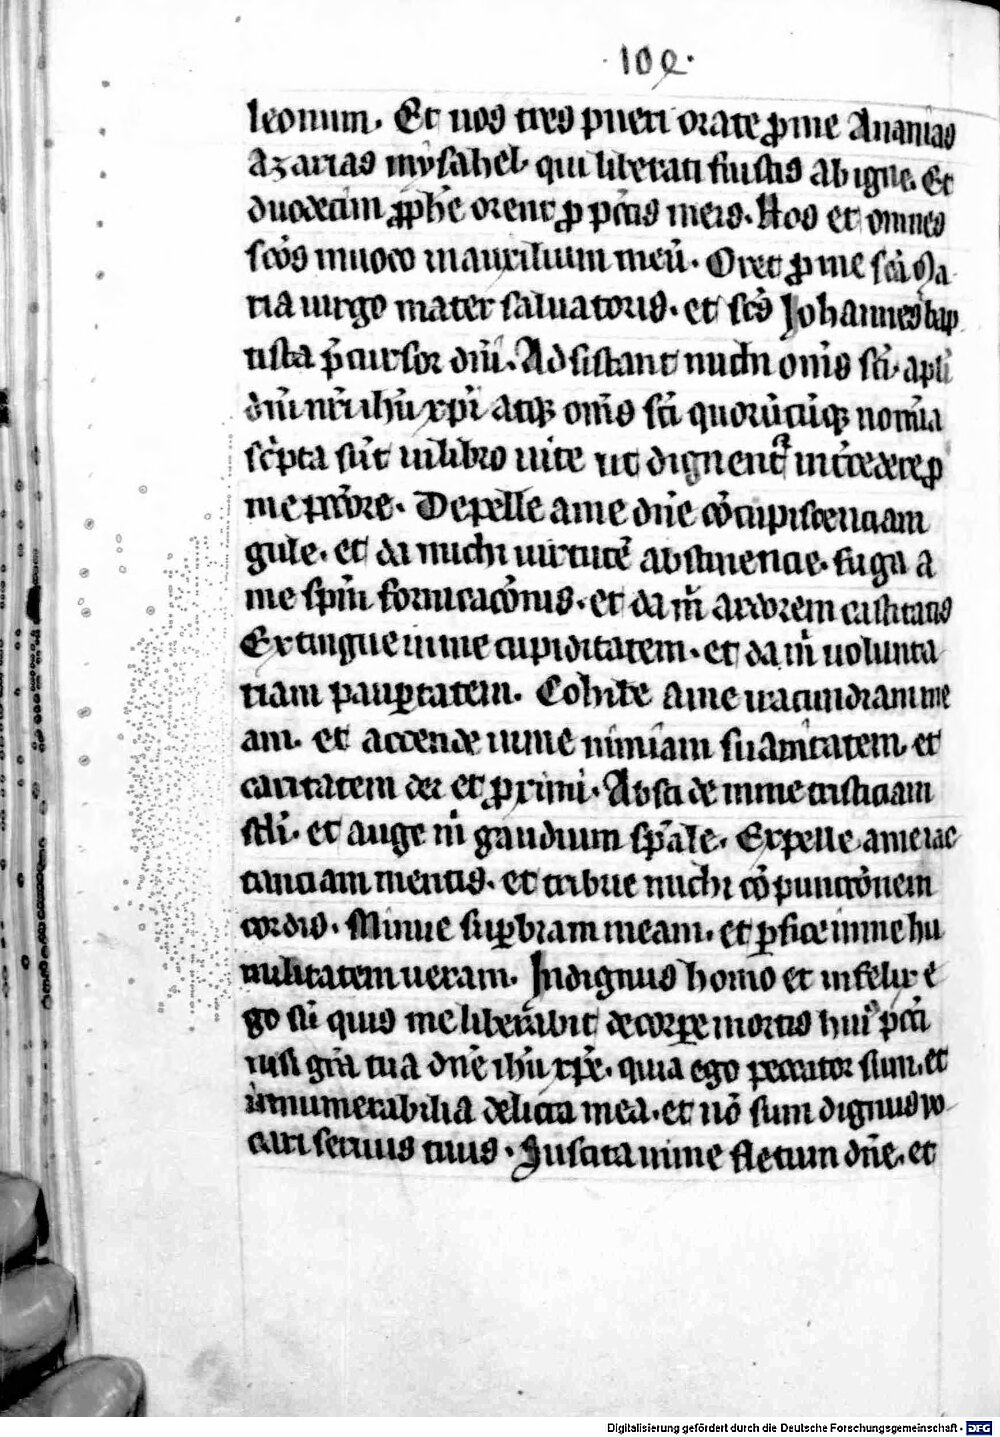 ·109·
leonum. Et uos tres pueri orate ꝓme Ananias
azarias mysahel. qui liberati fuistis ab igne. Et
duodecim ꝓphe͛ orent ꝓ pct̄is meis. Uos et omnes
sc̄os inuoco inauxilium meū. Oret ꝓme sc̄a Ma-
ria uirgo mater saluatoris. et sc̄s Johannes bap
tista p̄cursor dn̄i. Adsistant michi om̄s sc̄i apl̄i
dn̄i nr̄i ihū xpi atqꝫ om̄s sc̄i quorūcūqꝫ nomīa
sc̄pta sūt inlibro uite ut dignent᷑ int̄cedere ꝓ
me pctōre. Depelle ame dn̄e cōcupiscenciam
gule. et da michi uirtutē abstinencie. fuga a
me spm̄ fornicacōnis. et da m̄ ardorem castitatis
Extingue inme cupiditatem. et da m̄ uolunta
riam paupꝑtatem. Cohibe ame iracundiam me
am. et accende inme nimiam suauitatem. et
caritatem dei et ꝓximi. Abscide inme tristiciam
scl̄i. et auge m̄ gaudium sp̄ale. Expelle ame iac
tanciam mentis. et tribue michi cōpunctōnem
cordis. Minue suꝑbiam meam. et ꝑfice inme hu
militatem ueram. Indignus homo et infelix e
go sū quis me liberabit decorpe mortis hui᷒ pct̄i
nisi grā tua dn̄e ihū xp̄e. quia ego peccator sum. et
innumerabilia delicta mea. et nō sum dignus uo-
cari seruus tuus. Suscita inme fletum dn̄e. et
Digitalisierung gefördert durch die Deutsche Forschungsgemeinschaft - DFG